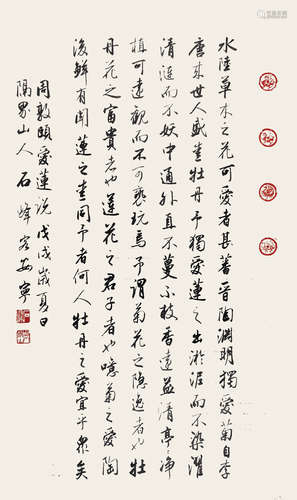 水陸草木之花可愛者甚蕃晉陶淵明獨愛菊自李
唐來世人盛愛牡丹予獨愛蓮之出淤泥而不染濯
清漣而不妖中通外直不蔓不枝香遠益清亭亭淨
植可遠觀而不可褻玩焉予謂菊花之隱逸者也牡
丹花之富貴者也蓮花之君子者也噫菊之愛陶
後鮮有聞蓮之愛同予者何人牡丹之愛宜乎衆矣
周敦頤愛蓮說戊戌歲夏日
界山人石峰安寧